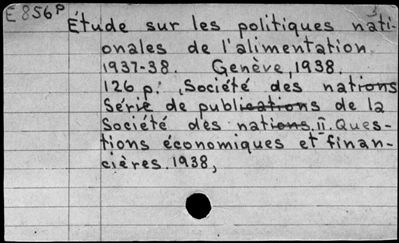 E 856P
Étude sur les politiques nati-
onales de l'alimentation
1937-38. Genève, 1938.
126 p. , Société des nations
Série de publications de la
Société des nations. II. Ques-
tions économiques et finan-
cières. 1938,